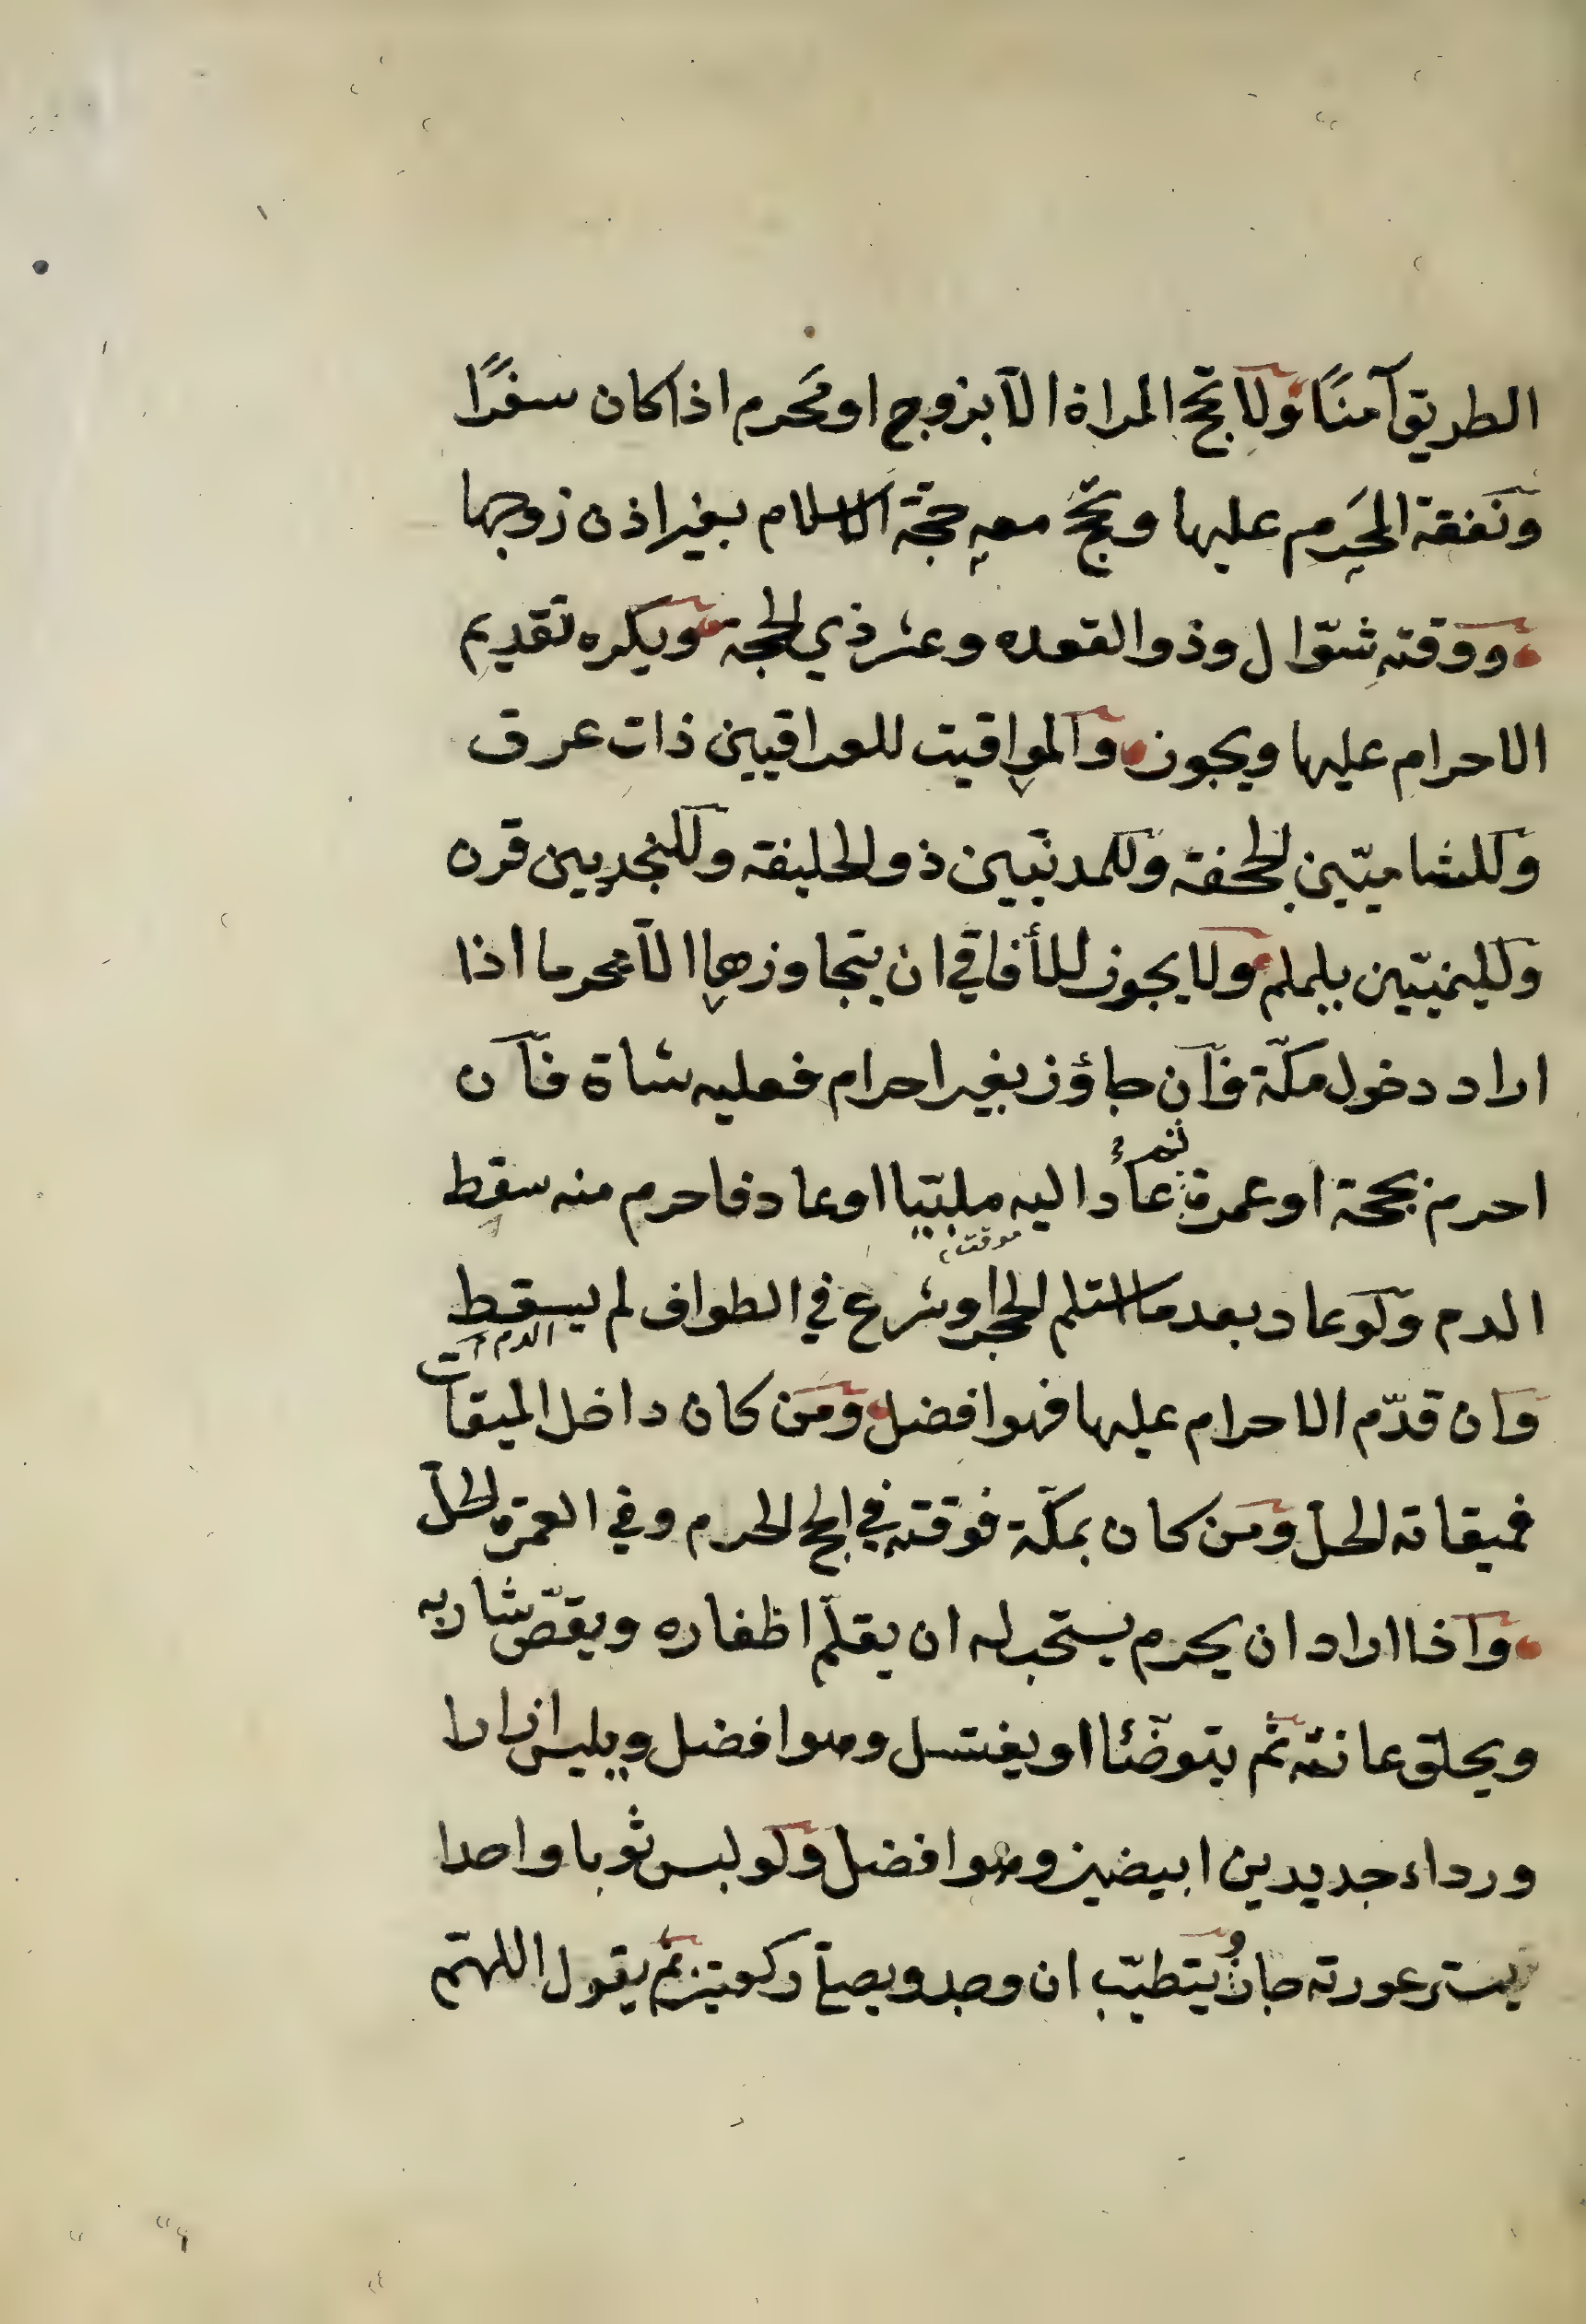 الطريق آمنًا ولا تحج المراة الا بزوج او مَحرم اذا كان سفرًا
ونفقة المَحرم عليها وتحجّ معه حجّة الاسلام بغير اذن زوجها
ووقته شوّال وذوالقعده وعشر ذي الحجة ويكره تقديم
الاحرام عليها ويجوز والمواقيت للعراقيين ذات عرق
وللشاميّين الجحفة وللمدنيّين ذوالحليفة وللنجديين قرن
ولليمنيّين يلملم ولا يجوز للأفاقي ان يتجاوزها الا محرما اذا
اراد دخول مكّة فان جاوز بغير احرام فعليه شاة فان
احرم بحجة او عمرة ثم عاد اليه ملبّيا او عاد فاحرم منه سقط
الدم ولو عاد بعد ما استلم الحجر او شرع في الطواف لم يسقط
الدم
وان قدّم الاحرام عليها فهو افضل ومن كان داخل الميقات
فميقاته الحلّ ومن كان بمكّة فوقته في الحج الحرم وفي العمرة الحلّ
واذا اراد ان يحرم يستحب له ان يقلّم اظفاره ويقصّ شاربه
ويحلق عانته ثم يتوضّئا او يغتسل وهو افضل ويلبس ازارا
ورداء جديدين ابيضين وهو افضل ولو لبس ثوبا واحدا
يستر عورته جاز ويتطيّب ان وجد ويصلّي ركعتين ثم يقول اللهمّ